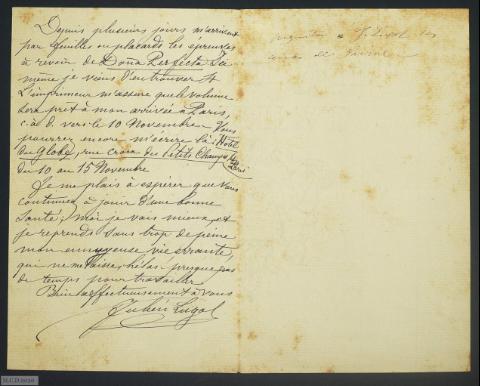 Depuis plusieurs jours m'arrivent
par feuilles ou placards les épreuves
à revoir de Doña Perfecta. Ici
même je viens d'en trouver 4
L'imprimeur m'assure que le volume
sera prêt à mon arrivée à Paris,
c. à d. vers le 10 Novembre. Vous
pourrez encore m'écrire là: Hotel
du Globe, rue croix des Petits Champs, Paris
du 10 au 15 Novembre
Je me plais à espérer que vous
continuez à jouir d'une bonne
santé; moi je vais mieux, et
je reprends sans trop de peine
mon ennuyeuse vie errante,
qui ne me laisse, hélas, presque pas
de temps pour travailler.
Bien affectueusement à vous
Julien Lugol
M.C.D 2020